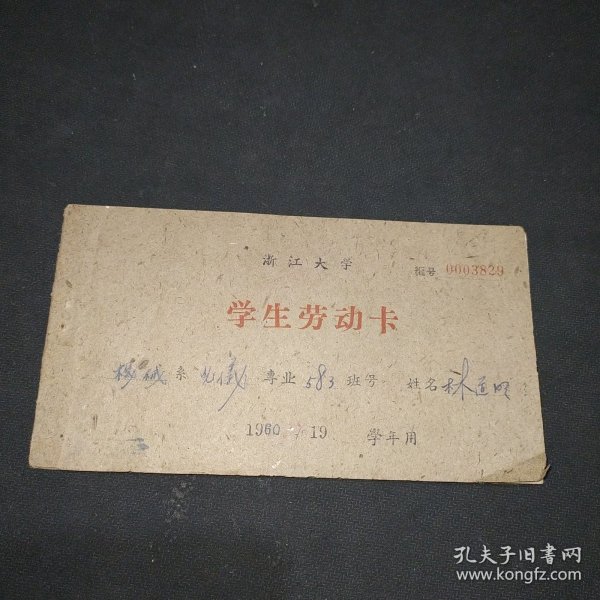 浙江大学
编号 0003829
学生劳动卡
机械系 光仪 專业 583 班号 姓名 林道明
1960 - 19 學年用
孔夫子旧书网
www.kongfz.com